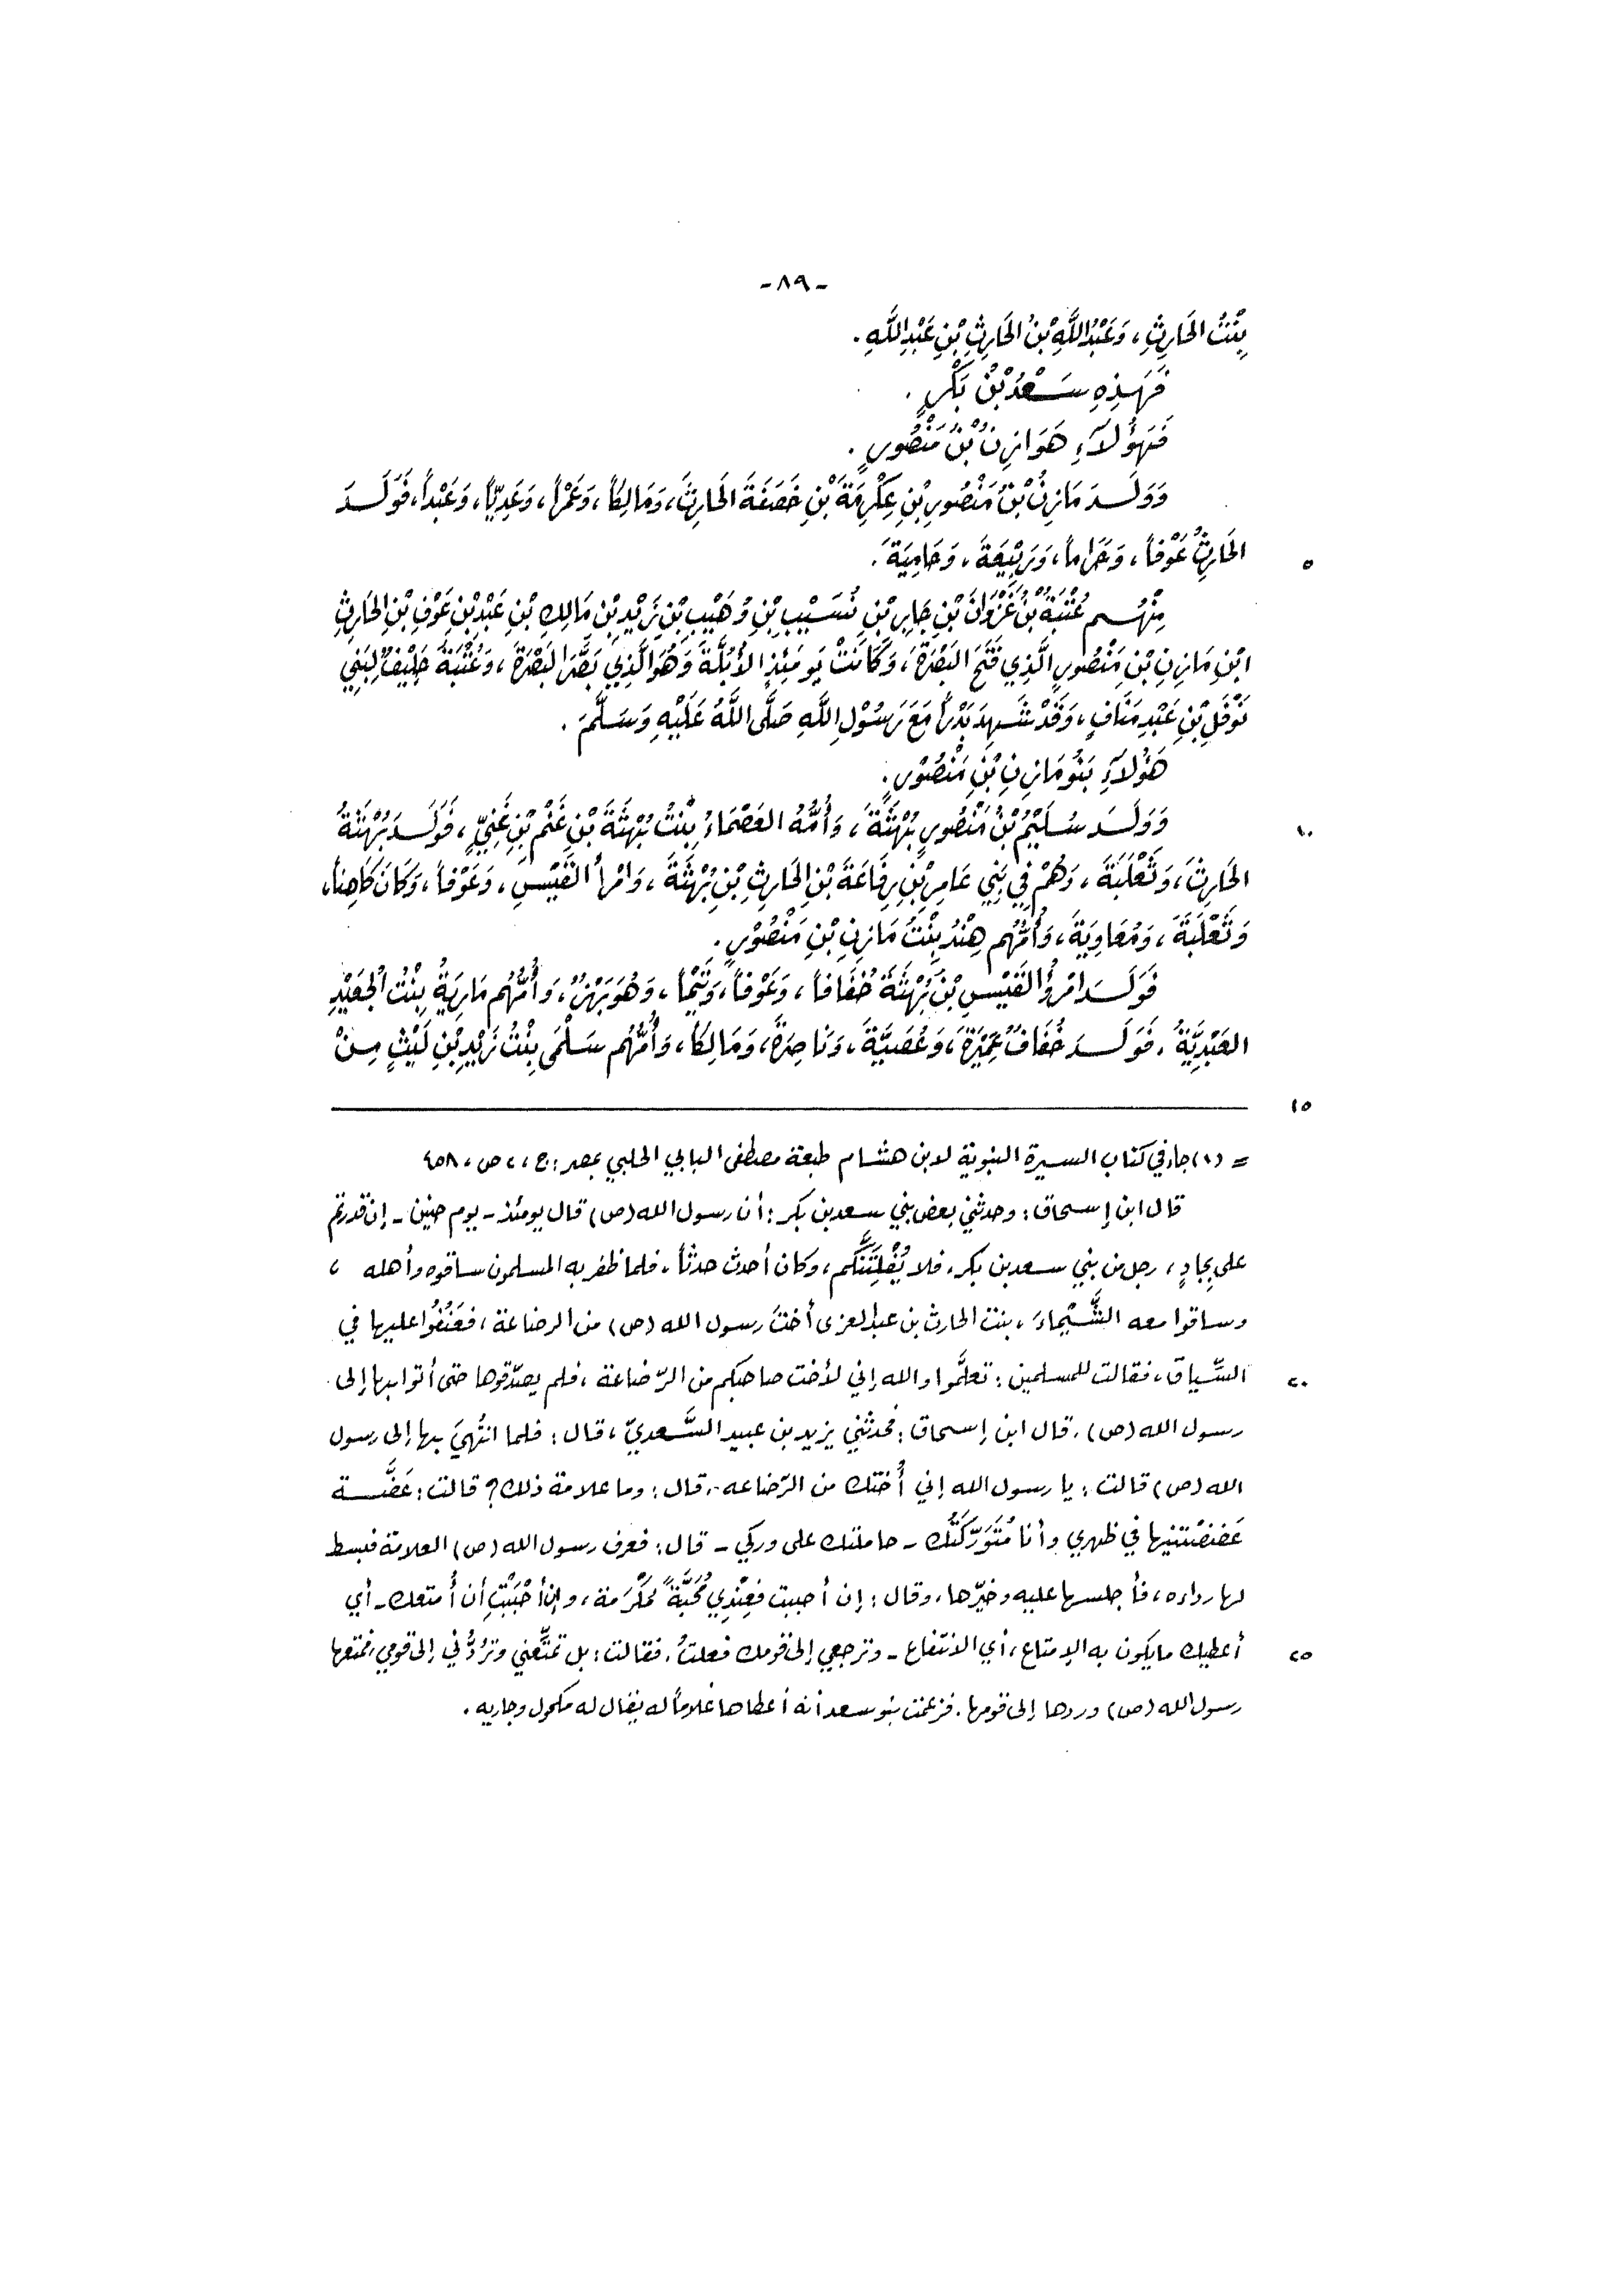 -٨٩-
بِنْتُ الحَارِثِ، وَعَبْدُ اللَّهِ بْنُ الحَارِثِ بْنِ عَبْدِ اللَّهِ.
فَهَذِهِ سَعْدُ بْنُ بَكْرٍ.
فَهَؤُلَآءِ هَوَازِنُ بْنُ مَنْصُورٍ.
وَوَلَدَ مَازِنُ بْنُ مَنْصُورِ بْنِ عِكْرِمَةَ بْنِ خَصَفَةَ الحَارِثَ، وَمَالِكاً، وَعَمْراً، وَعَدِيّاً، وَعَبْداً، فَوَلَدَ
٥ الحَارِثُ عَوْفاً، وَحَرَاماً، وَرَبِيْعَةَ، وَحَامِيَةَ.
مِنْهُم عُتْبَةُ بْنُ غَزْوَانَ بْنِ جَابِرِ بْنِ نُسَيْبِ بْنِ وُهَيْبِ بْنِ زَيْدِ بْنِ مَالِكِ بْنِ عَبْدِ بْنِ عَوْفِ بْنِ الحَارِثِ
ابْنِ مَازِنِ بْنِ مَنْصُورٍ الَّذِي فَتَحَ البَصْرَةَ، وَكَانَتْ يَومَئِذٍ الأُبُلَّةَ وَهُوَ الَّذِي بَصَّرَ البَصْرَةَ، وَعُتْبَةُ حَلِيْفٌ لِبَنِي
نَوْفَلِ بْنِ عَبْدِ مَنَافٍ، وَقَدْ شَهِدَ بَدْراً مَعَ رَسُوْلِ اللَّهِ صَلَّى اللَّهُ عَلَيْهِ وَسَلَّمَ.
هَؤُلَآءِ بَنُو مَازِنِ بْنِ مَنْصُوْرٍ.
١٠ وَوَلَدَ سُلَيْمُ بْنُ مَنْصُورٍ بُهْثَةَ، وَأُمُّهُ العَصْمَاءُ بِنْتُ بُهْثَةَ بْنِ غَنْمِ بْنِ غَنِيٍّ، فَوَلَدَ بُهْثَةُ
الحَارِثَ، وَثَعْلَبَةَ، وَهُمْ فِي بَنِي عَامِرِ بْنِ رِفَاعَةَ بْنِ الحَارِثِ بْنِ بُهْثَةَ، وَامْرَأَ القَيْسِ، وَعَوْفاً، وَكَانَ كَاهِناً،
وَثَعْلَبَةَ، وَمُعَاوِيَةَ، وَأُمُّهُم هِنْدُ بِنْتُ مَازِنِ بْنِ مَنْصُوْرٍ.
فَوَلَدَ امْرُؤُ القَيْسِ بْنُ بُهْثَةَ خُفَافاً، وَعَوْفاً، وَتَيْماً، وَهُوَ بَهْزٌ، وَأُمُّهُم مَارِيَةُ بِنْتُ الجُعَيْدِ
العَبْدِيَّةُ. فَوَلَدَ خُفَافٌ عَمِيْرَةَ، وَعُصَيَّةَ، وَنَاصِرَةَ، وَمَالِكاً، وَأُمُّهُم سَلْمَى بِنْتُ زَيْدِ بْنِ لَيْثٍ مِنْ
١٥
= (١) جاء في كتاب السيرة النبوية لابن هشام طبعة مصطفى البابي الحلبي بمصر: ج، ٢ ص، ٤٥٨
قال ابن إسحاق: وحدثني بعض بني سعد بن بكر: أن رسول الله (ص) قال يومئذ - يوم حنين - إن قدرتم
على بِجادٍ، رجل من بني سعد بن بكر، فلا يُفْلِتَنَّكم، وكان أحدث حدثاً، فلما ظفر به المسلمون ساقوه وأهله ،
وساقوا معه الشَّيْماءَ، بنت الحارث بن عبد العزى أختَ رسول الله (ص) من الرضاعة، فعَنُفُوا عليها في
٢٠ السِّياق، فقالت للمسلمين: تعلَّموا والله إني لأخت صاحبكم من الرّضاعة، فلم يصدّقوها حتى أتوا بها إلى
رسول الله (ص). قال ابن إسحاق: فحدثني يزيد بن عبيد السَّعديّ، قال: فلما انتُهِيَ بها إلى رسول
الله (ص) قالت: يا رسول الله إني أُختك من الرّضاعه، قال: وما علامة ذلك؟ قالت: عَضَّة
عَضضْتنيها في ظهري وأنا مُتَوَرِّكَتُك - حاملتك على وركي - قال: فعرف رسول الله (ص) العلامة فبسط
لها رداءه، فأجلسها عليه وخيّرها، وقال: إن أحببت فعِنْدِي مُحَبَّةً مُكْرَمة، وإن أحْبَبْتِ أن أُمتعك - أي
٢٥ أعطيك ما يكون به الإمتاع، أي الانتفاع - وترجعي إلى قومك فعلتُ. فقالت: بل تمتّعني وتَرُدُّني إلى قومي، فمتعها
رسول الله (ص) وردها إلى قومها. فزعمت بنو سعد أنه أعطاها غلاماً له يقال له مكحول وجاريه.